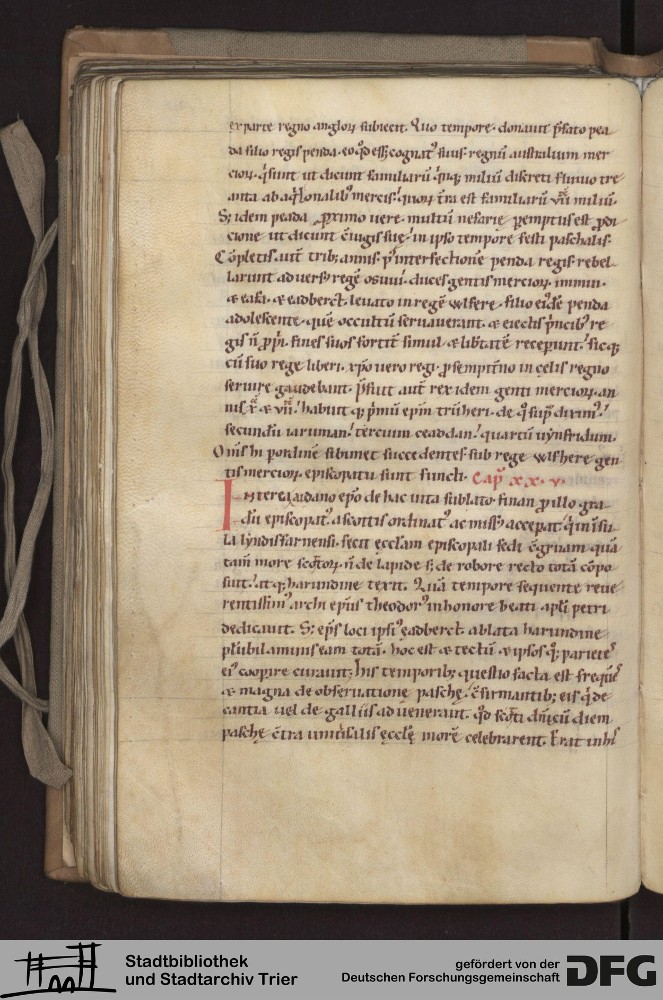 ex parte regno anglorꝝ subiecit. Quo tempore. donauit p̄fato pea
da filio regis penda. eo qđ eēt cognatꝰ suus. regnū australium mer
ciorꝝ. q̄ sunt ut dicunt familiarū .qnqꝫ. miliū discreti fluuio tre
anta ab aq̇lonalibꝰ mercis. quorꝝ t̄ra est familiarū .vii. miliū.
Sꝫ idem peada proximo uere. multū nefarie pemptus est prodi
cione ut dicunt c̄iugis suę. in ipso tempore festi paschalis.
Cōpletis. aut̄ tribꝫ annis. p̄ interfectionē penda regis. rebel
larunt aduersꝰ regē osuuiu duces gentis merciorꝝ. immin.
& eafa. & eadberct. leuato in regē wlfere. filio eiꝰdē penda
adolescente. quē occultū seruauerant. & eiectis p̄ncibꝰ re
gis n̄ p̄prii. fines suos fortit̄ simul & lib̄tatē receperunt. sicqꝫ
cū suo rege liberi. xp̄o uero regi. p sempit̄no in cęlis regno
seruire gaudebant. p̄fuit aut̄ rex idem genti merciorꝝ. an
nis .x. & vii. habuitqꝫ p̄mū ep̄m trūheri. de q̊ supͣ diximꝰ.
secundū iaruman. tercium ceaddan. quartū uẏnfridum.
Om̄s hi p ordinē sibimet succedentes. sub rege wlfhere gen
tis merciorꝝ. episcopatu sunt functi. Cap̄ xx. v.
Interea aidano ep̄o de hac uita sublato. finan p illo gra
dū episcopatꝰ a scottis ordinatꝰ ac missꝰ acceperat. q̇ in isu
la lẏndisfarnensi. fecit ęccl̄am episcopali sedi c̄gruam. quā
tam̄ more scottorꝝ. n̄ de lapide. sꝫ de robore secto totā cōpo
suit. atqꝫ harundine texit. Quā tempore sequente reue
rentissimꝰ archiep̄us theodorꝰ in honore beati apl̄i petri
dedicauit. Sꝫ ep̄s loci ipsiꝰ ęadberct ablata harundine
plūbi laminis eam totā. hoc est & tectū & ipsos qꝫ parietes
eiꝰ cooꝑire curauit. His temporibꝫ questio facta est frequēs
& magna de obseruatione paschę. c̄firmantibꝫ eis q̇ de
cantia uel de galliis aduenerant. qđ scotti dn̄icū diem
paschę c̄tra uniuersalis ęccl̄ę morē celebrarent. Erat in his
Stadtbibliothek
und Stadtarchiv Trier
gefördert von der
Deutschen Forschungsgemeinschaft
DFG